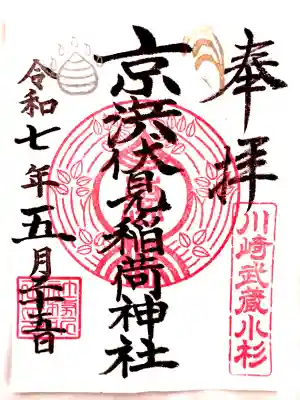 奉拝
川崎武蔵小杉
京浜伏見稲荷神社
令和七年五月二十五日